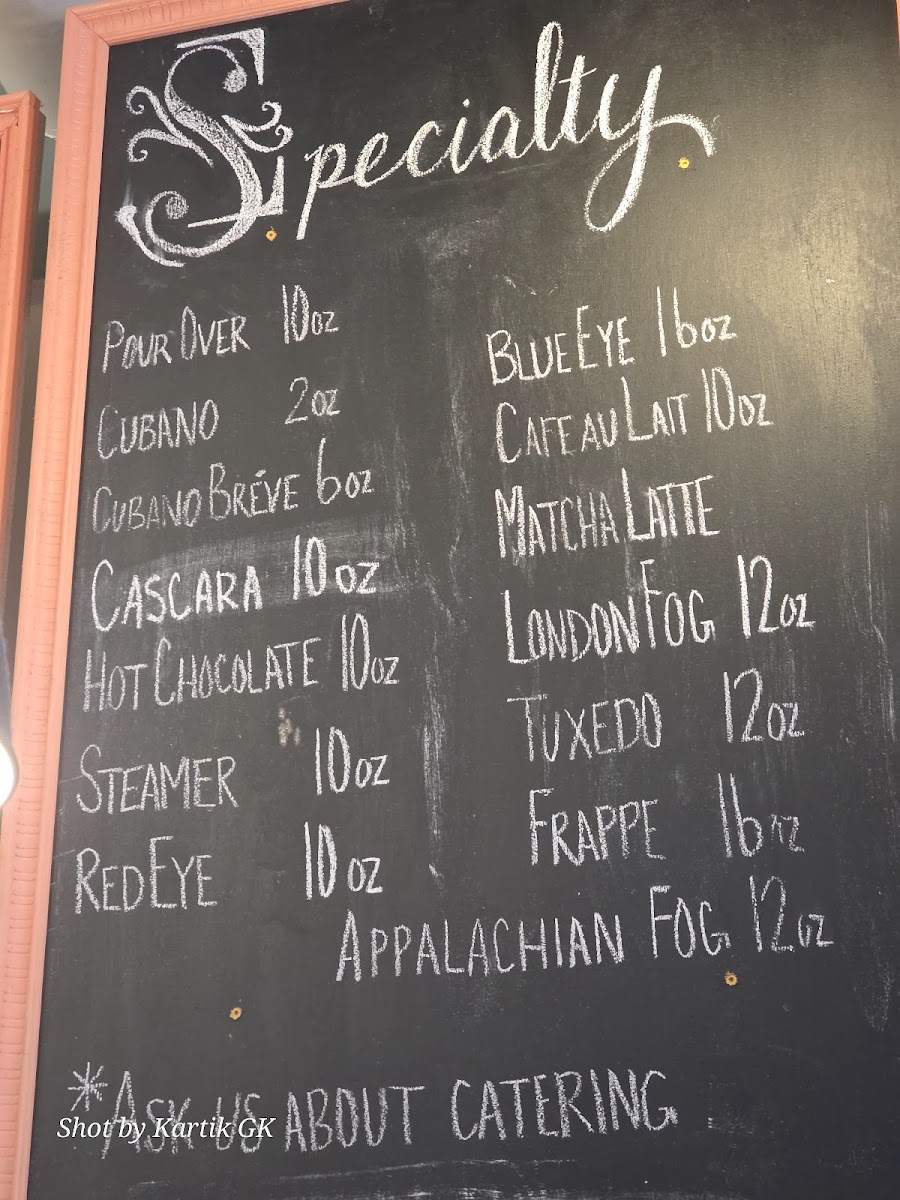 Specialty
Pour Over 10oz
Cubano 2oz
Cubano Bréve 6oz
Cascara 10oz
Hot Chocolate 10oz
Steamer 10oz
Red Eye 10oz
Blue Eye 16oz
Cafe au Lait 10oz
Matcha Latte
London Fog 12oz
Tuxedo 12oz
Frappe 16oz
Appalachian Fog 12oz
*Ask us about catering
Shot by Kartik GK